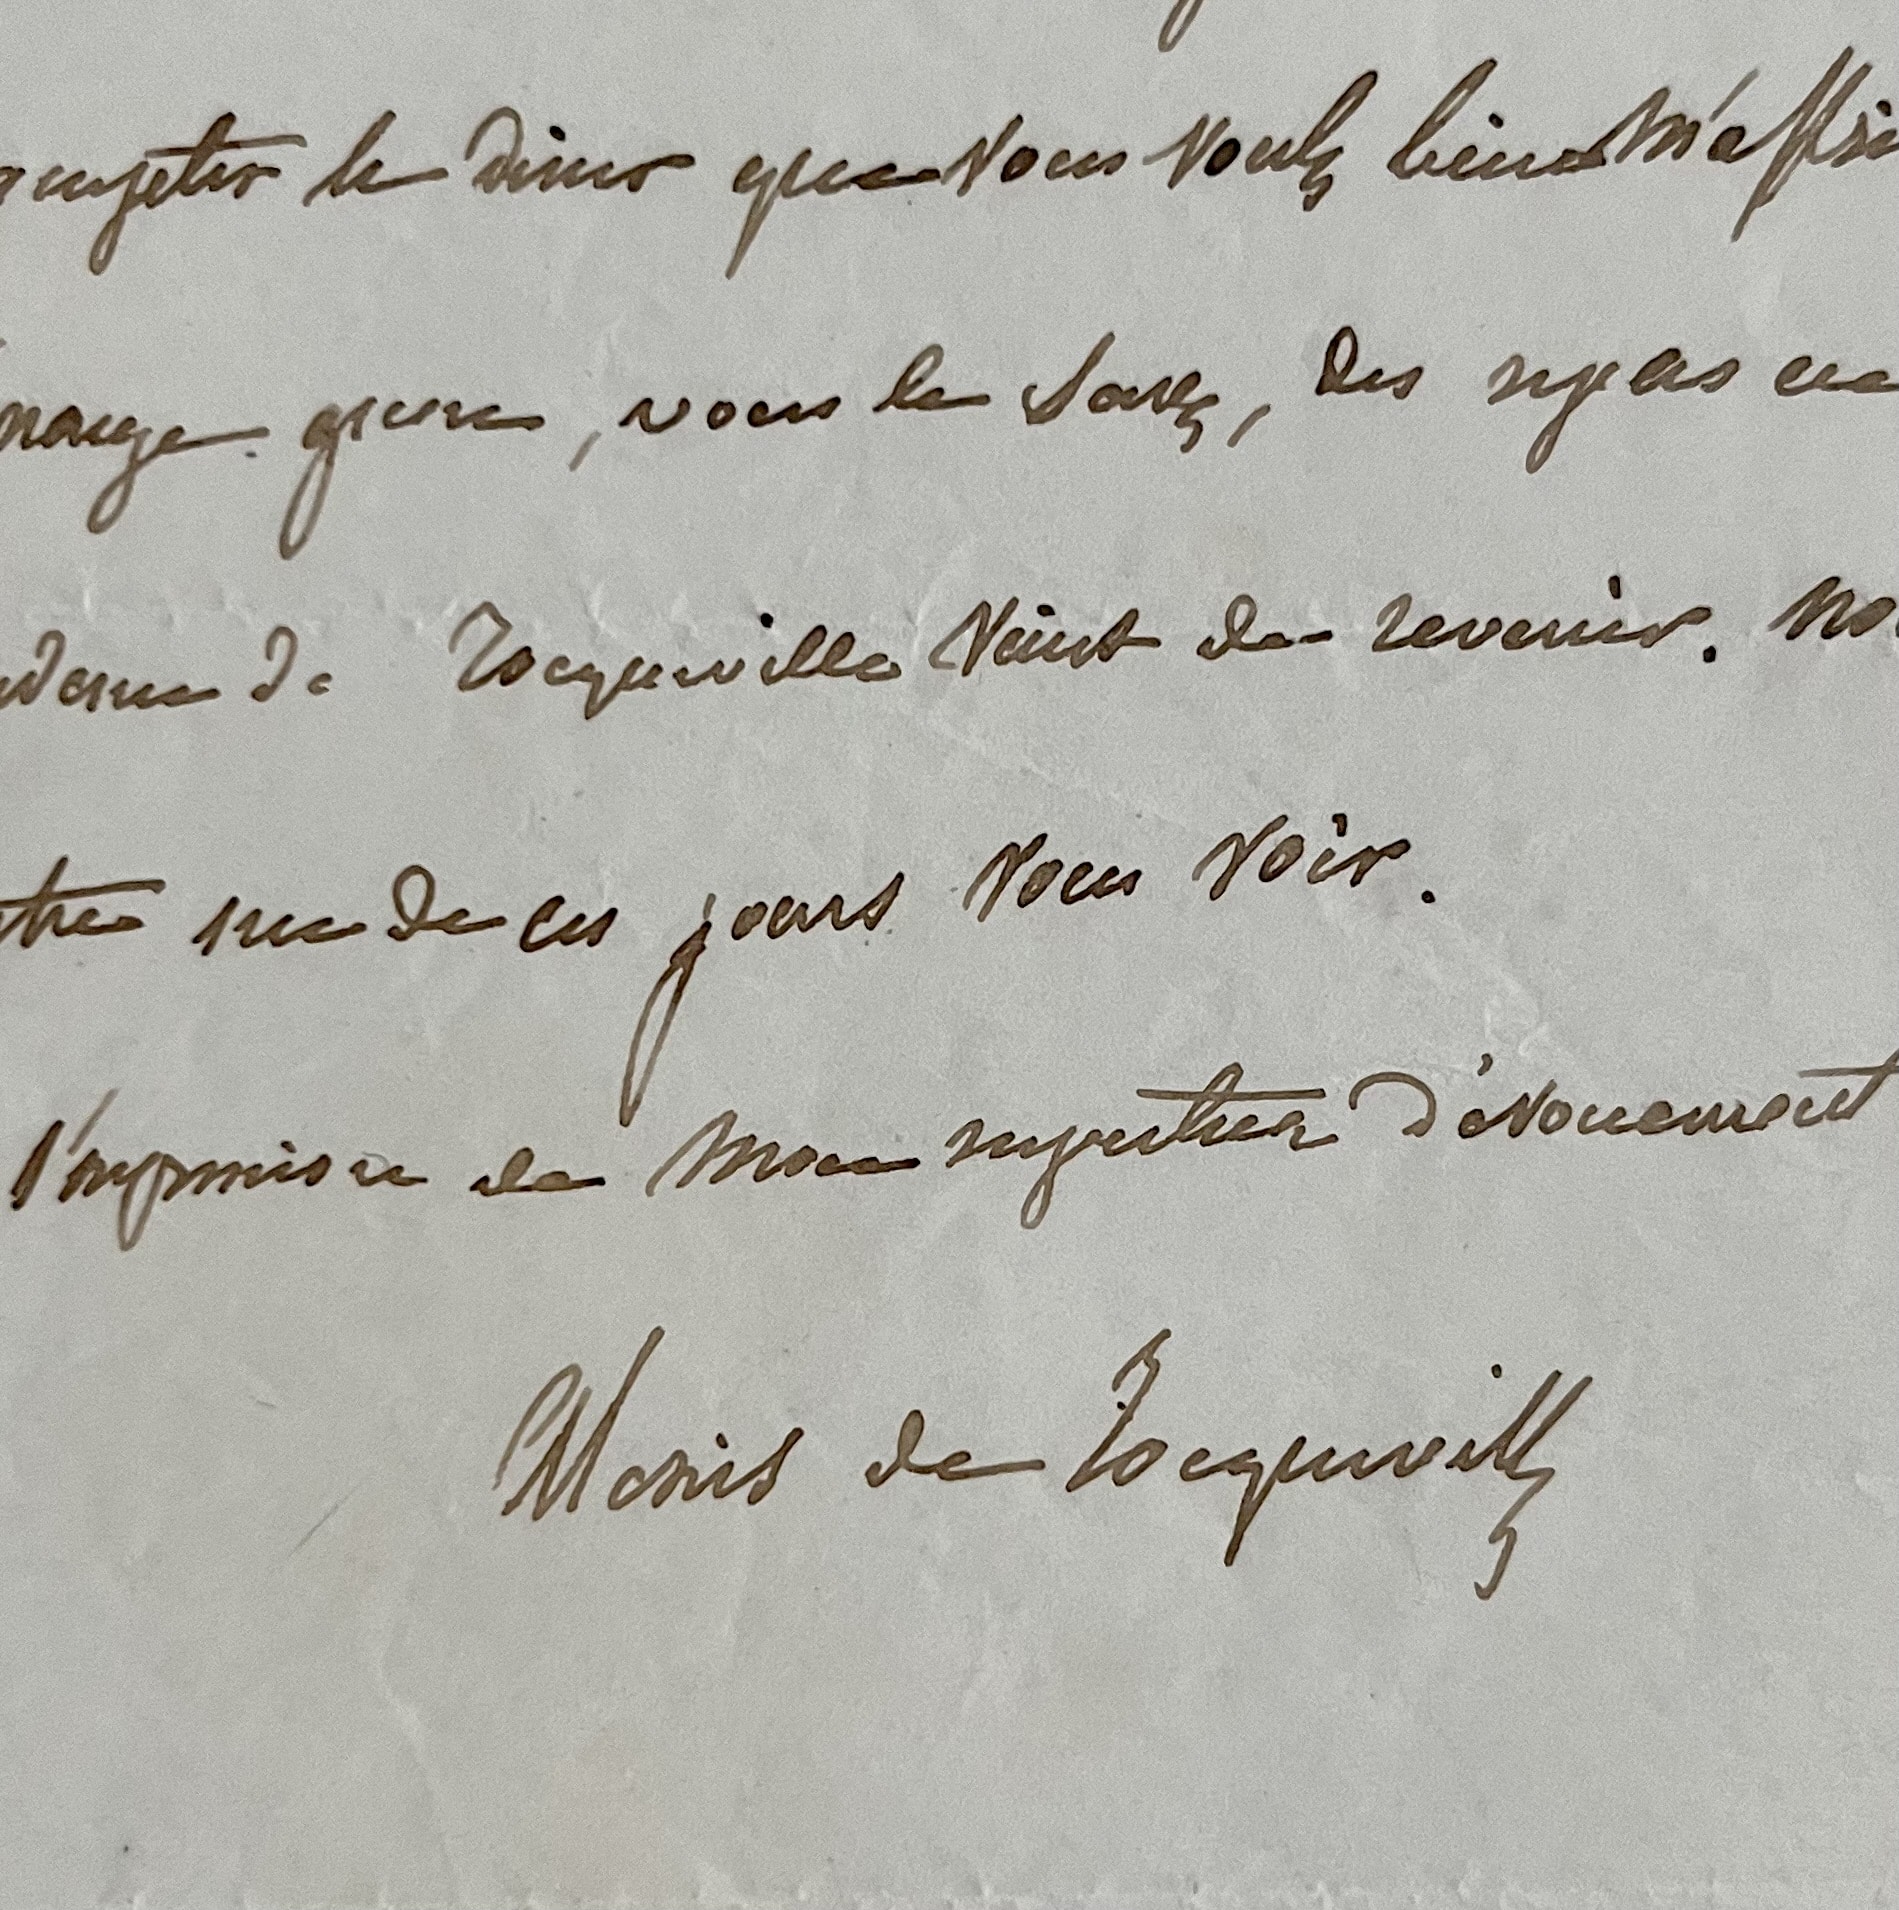 accepter le diner que vous voulez bien m'offri
mange guère, vous le savez, des repas en
dame de Tocqueville vient de revenir. No
être un de ces jours vous voir.
l'expression de mon respectueux dévouement
Alexis de Tocqueville